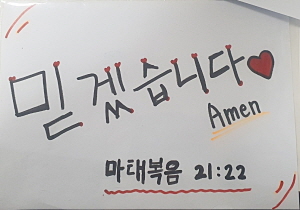 믿겠습니다
Amen
마태복음 21:22